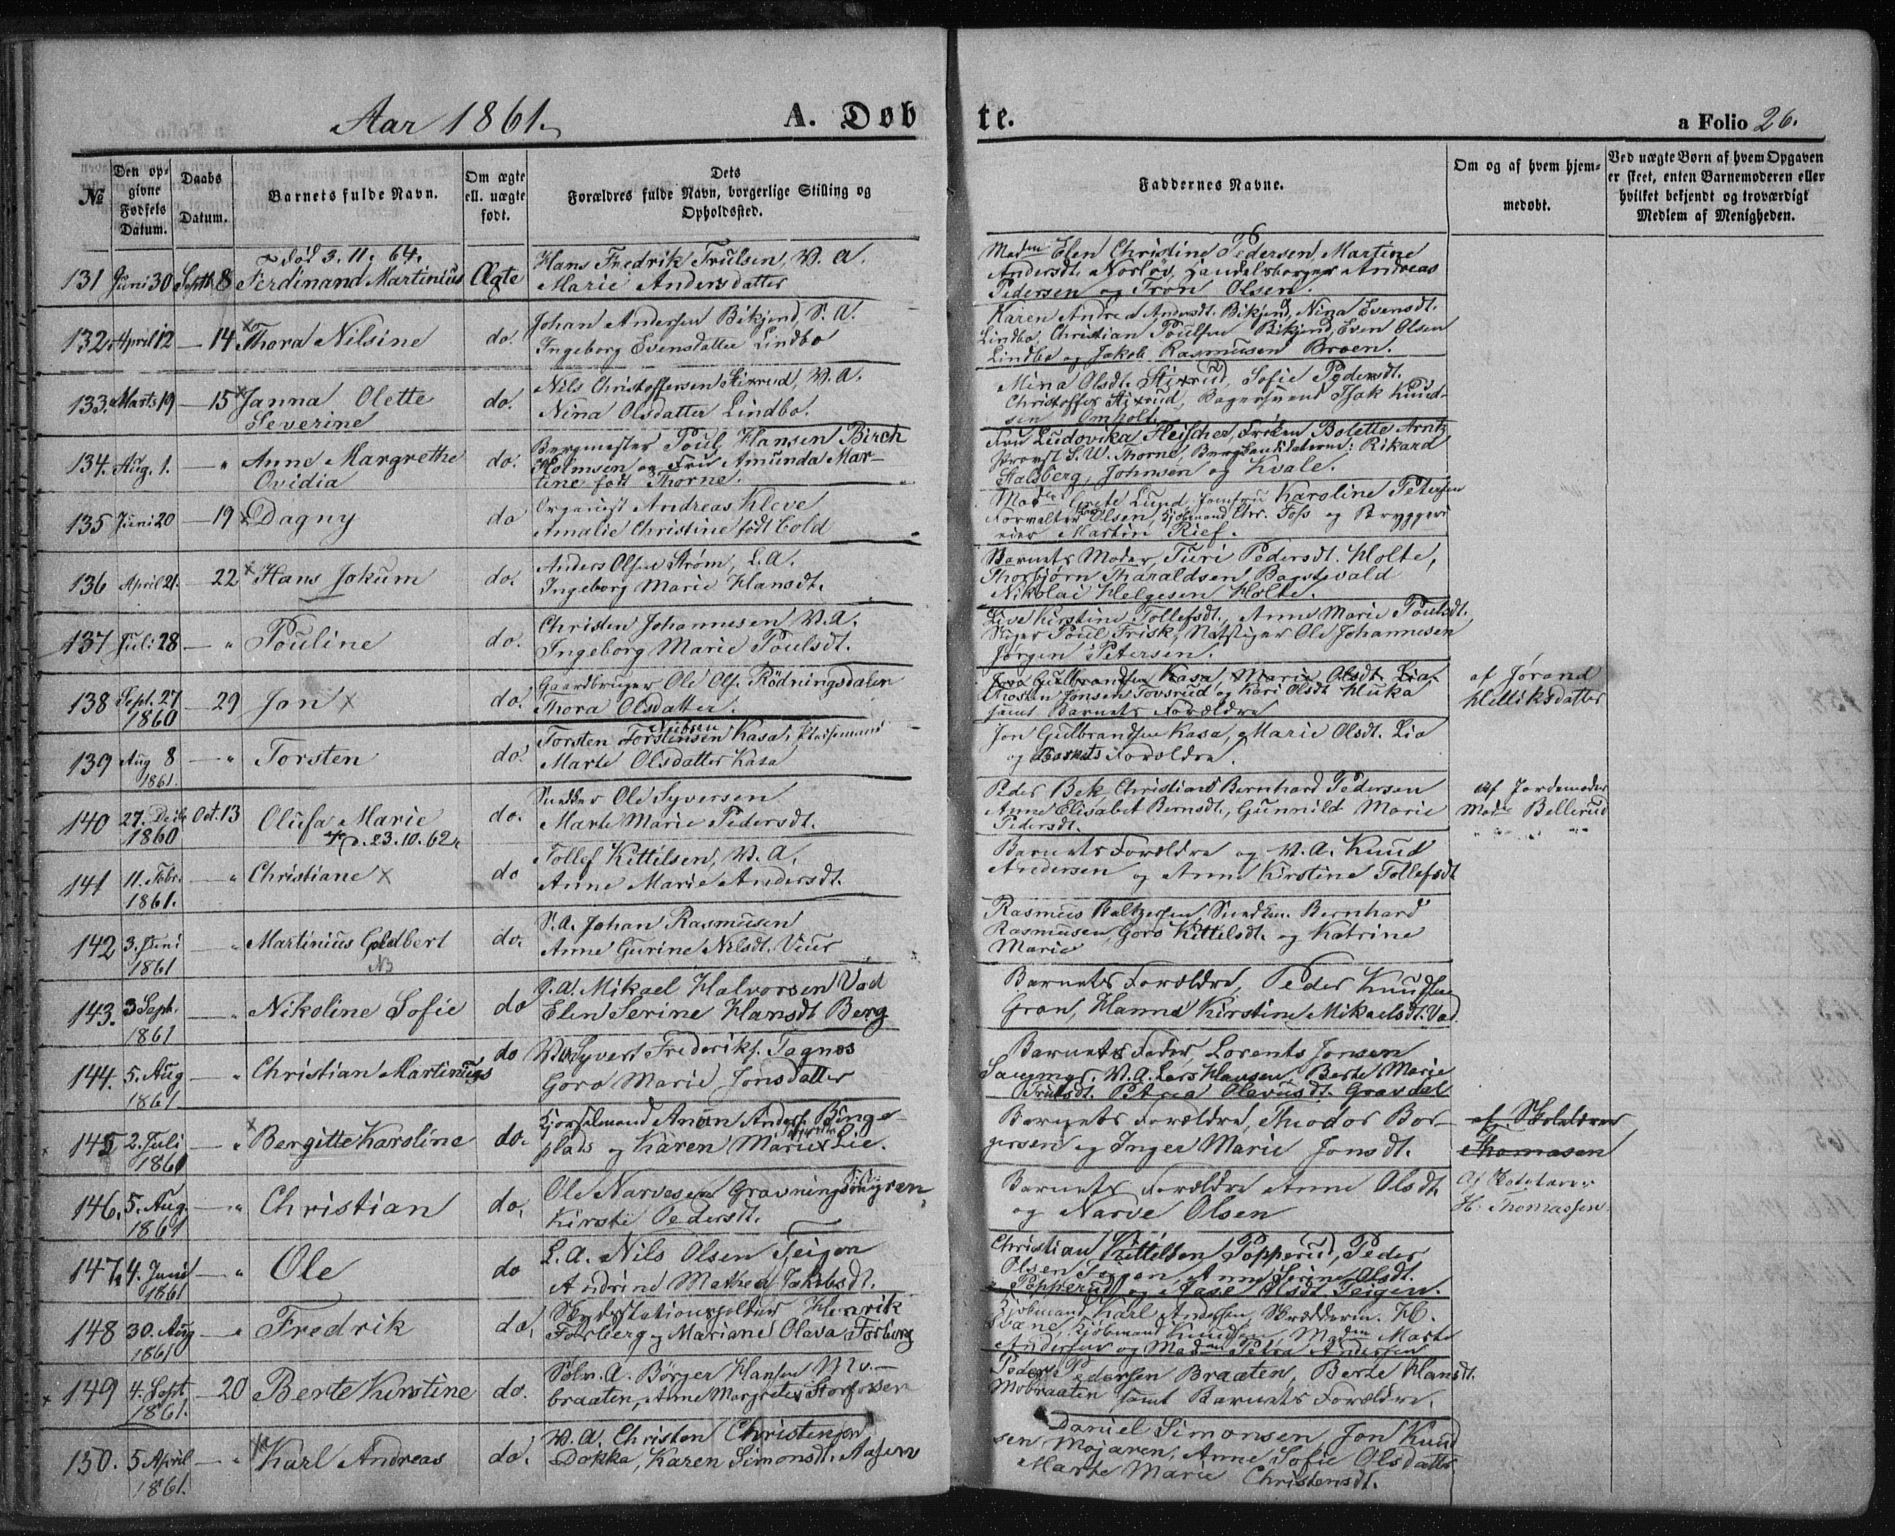 Aar 1861.
A. Døbte.
a Folio 26.
No
Den opgivne Fødsels Datum.
Daabs Datum.
Barnets fulde Navn.
Om ægte ell. uægte født.
Dets Forældres fulde Navn, borgerlige Stilling og Opholdssted.
Faddernes Navne.
Om og af hvem hjemmedøbt.
Ved uægte Børn af hvem Opgaven er skeet, enten Barnemoderen eller hvilket bekjendt og troværdigt Medlem af Menigheden.
død 3. 11. 64.
131 Juni 30 Septb 8 Ferdinand Martinius Ægte
Hans Fredrik Trulsen, V. A.
Marie Andersdatter
Madm Elen Christine Pedersen, Martine
Andersdt. Norløv, Handelsborger Andreas
Pedersen og Tron Olsen.
132 April 12 — 14 Thora Nilsine do.
Johan Andersen Bikjend, S. A.
Ingeborg Evensdatter Lindbo
Karen Andrea Andersdt. Bikjend, Nina Evensdt.
Lindbo, Christian Poulsen Bikjend, Even Olsen
Lindbo og Jakob Rasmusen Broen.
133. Marts 19 — 15 Janna Olette do.
Severine
Nils Christoffersen Stixrud, V. A.
Nina Olsdatter Lindbo.
Mina Olsdt. Stixrud, Sofie Pedersdt.
Christoffer Stixrud, Bagersvend Isak Knudsen
Omholt.
134. Aug. 1. — " Anne Margrethe do.
Ovidia
Bergmester Poul Hansen Birch
Holmsen og Fru Amunda Martine
født Thorne.
Fru Ludovika Fleischer, Frøken Bolette Arntz
Provst S. W. Thorne, Bergkandidaterne: Rikard
Halsberg, Johnsen og Kvale.
135 Juni 20 — 19 Dagny do
Organist Andreas Kleve
Amalie Christine født Cold
Madm Grete Lund, Jomfru Karoline Petersen
Forvalter Olsen, Kjøbmand Chr. Foss og Bryggerieier
Martin Rief.
136 April 21. — 22 Hans Jokum do.
Anders Olsen Strøm, L. A.
Ingeborg Marie Hansdt.
Barnets Moder, Turi Pedersdt. Holte,
Thorbjørn Tharaldsen Bagstevald
Nikolai Helgesen Holte.
137 Juli 28 — " Pouline do.
Christen Johannesen V. A.
Ingeborg Marie Poulsdt.
Live Kirstine Tollefsdt., Anne Marie Poulsdt.
Stiger Poul Frisk, Natstiger Ole Johannesen
Jørgen Petersen.
138 Sept. 27 1860 — 29 Jon do.
Gaardbruger Ole Ols. Rödningsdalen
Thora Olsdatter.
Jon Gulbrandsen Kasa, Marie Olsdt. Lia
Thosten Jonsen Tovsrud og Kari Olsdt Huka
samt Barnets Forældre
af Jørand
Helliksdatter
139 Aug 8 1861. — " Torsten do.
Torsten Torstensen Kasa, Pladsemand
Marte Olsdatter Kasa
Jon Gulbrandsen Kasa, Marie Olsdt. Lia
og Barnets Forældre.
140 27. Decb 1860 Oct. 13 Olufa Marie do.
D. 23. 10. 62.
Snedker Ole Syversen
Marte Marie Pedersdt.
Peder Bek, Christiane Bernhard Pedersen
Anne Elisabet Berntsdt., Gunnild Marie
Pedersdt.
Af Jordemoder
Madm Bellerud
141 11. Febr. 1861. — " Christiane do
Tollef Kittilsen, V. A.
Anne Marie Andersdt.
Barnets Forældre og V. A. Knud
Andersen og Anne Kirstine Tollefsdt
142 3. Juni 1861 — " Martinius Goldbert do.
NB
S. A. Johan Rasmusen
Anne Gurine Nilsdt. Viur
Rasmus Baltzersen, Snedker Bernhard
Rasmusen, Goro Kittelsdt. og Katrine
Marie
143. 3 Sept. 1861 — " Nikoline Sofie do
S. A. Mikael Halvorsen Vad
Elen Serine Hansdt Berg
Barnets Forældre, Peder Knudsen
Gran, Hanna Kirstine Mikaelsdt. Vad.
144. 5. Aug 1861. — " Christian Martinius do
V. A. Syvert Frederiks. Tagnos
Goro Marie Jonsdatter
Barnets Fader, Lorents Jonsen
Saugmr. V. A. Lars Hansen, Berte Marie
Trulsdt. Petrea Olevusdt. Gravdal
145 2. Juli 1861 — " Bergitte Karoline do.
Kjørselmand Anun Anders. Bingeplads
og Karen Marie Lie.
Barnets Forældre, Theodor Borgersen
og Inger Marie Jonsdt.
af Skolelærer
Thomasen
146. 5. Aug. 1861 — " Christian do.
Ole Narvesen Gravningsmyren
Kirsti Pedersdt.
Barnets Forældre Anne Olsdt.
og Narve Olsen
Af Skolelærer
H. Thomassen
147. 4. Juni 1861 — " Ole do
L. A. Nils Olsen Teigen
Andrine Mathea Jakobsdt.
Christian Kittelsen Popperud, Peder
Olsen Teigen, Anne Serine Olsdt.
Popperud og Aase Olsdt Teigen.
148 30. Aug 1861 — " Fredrik do.
Skydsstationsholder Henrik
Forsberg og Mariane Olava Forsberg
Kjøbmand Karl Andersen, Skrædderm. H.
Svane, Kjøbmand Knudsen, Madm Marte
Andersen og Madm Petra Andersen
149 4. Sept 1861. — 20 Berte Kirstine do.
Sølv. A. Börger Hansen Mobraaten,
Anne Margrete Storfossen
Peder Pedersen Braaten, Berte Hansdt.
Mobraaten samt Barnets Forældre.
150. 5 April 1861. — " Karl Andreas do.
V. A. Christen Christensen
Dokka, Karen Simonsdt. Aasen
Daniel Simonsen, Jon Knudsen
Mojaren, Anne Sofie Olsdatter
Marte Marie Christensdt.